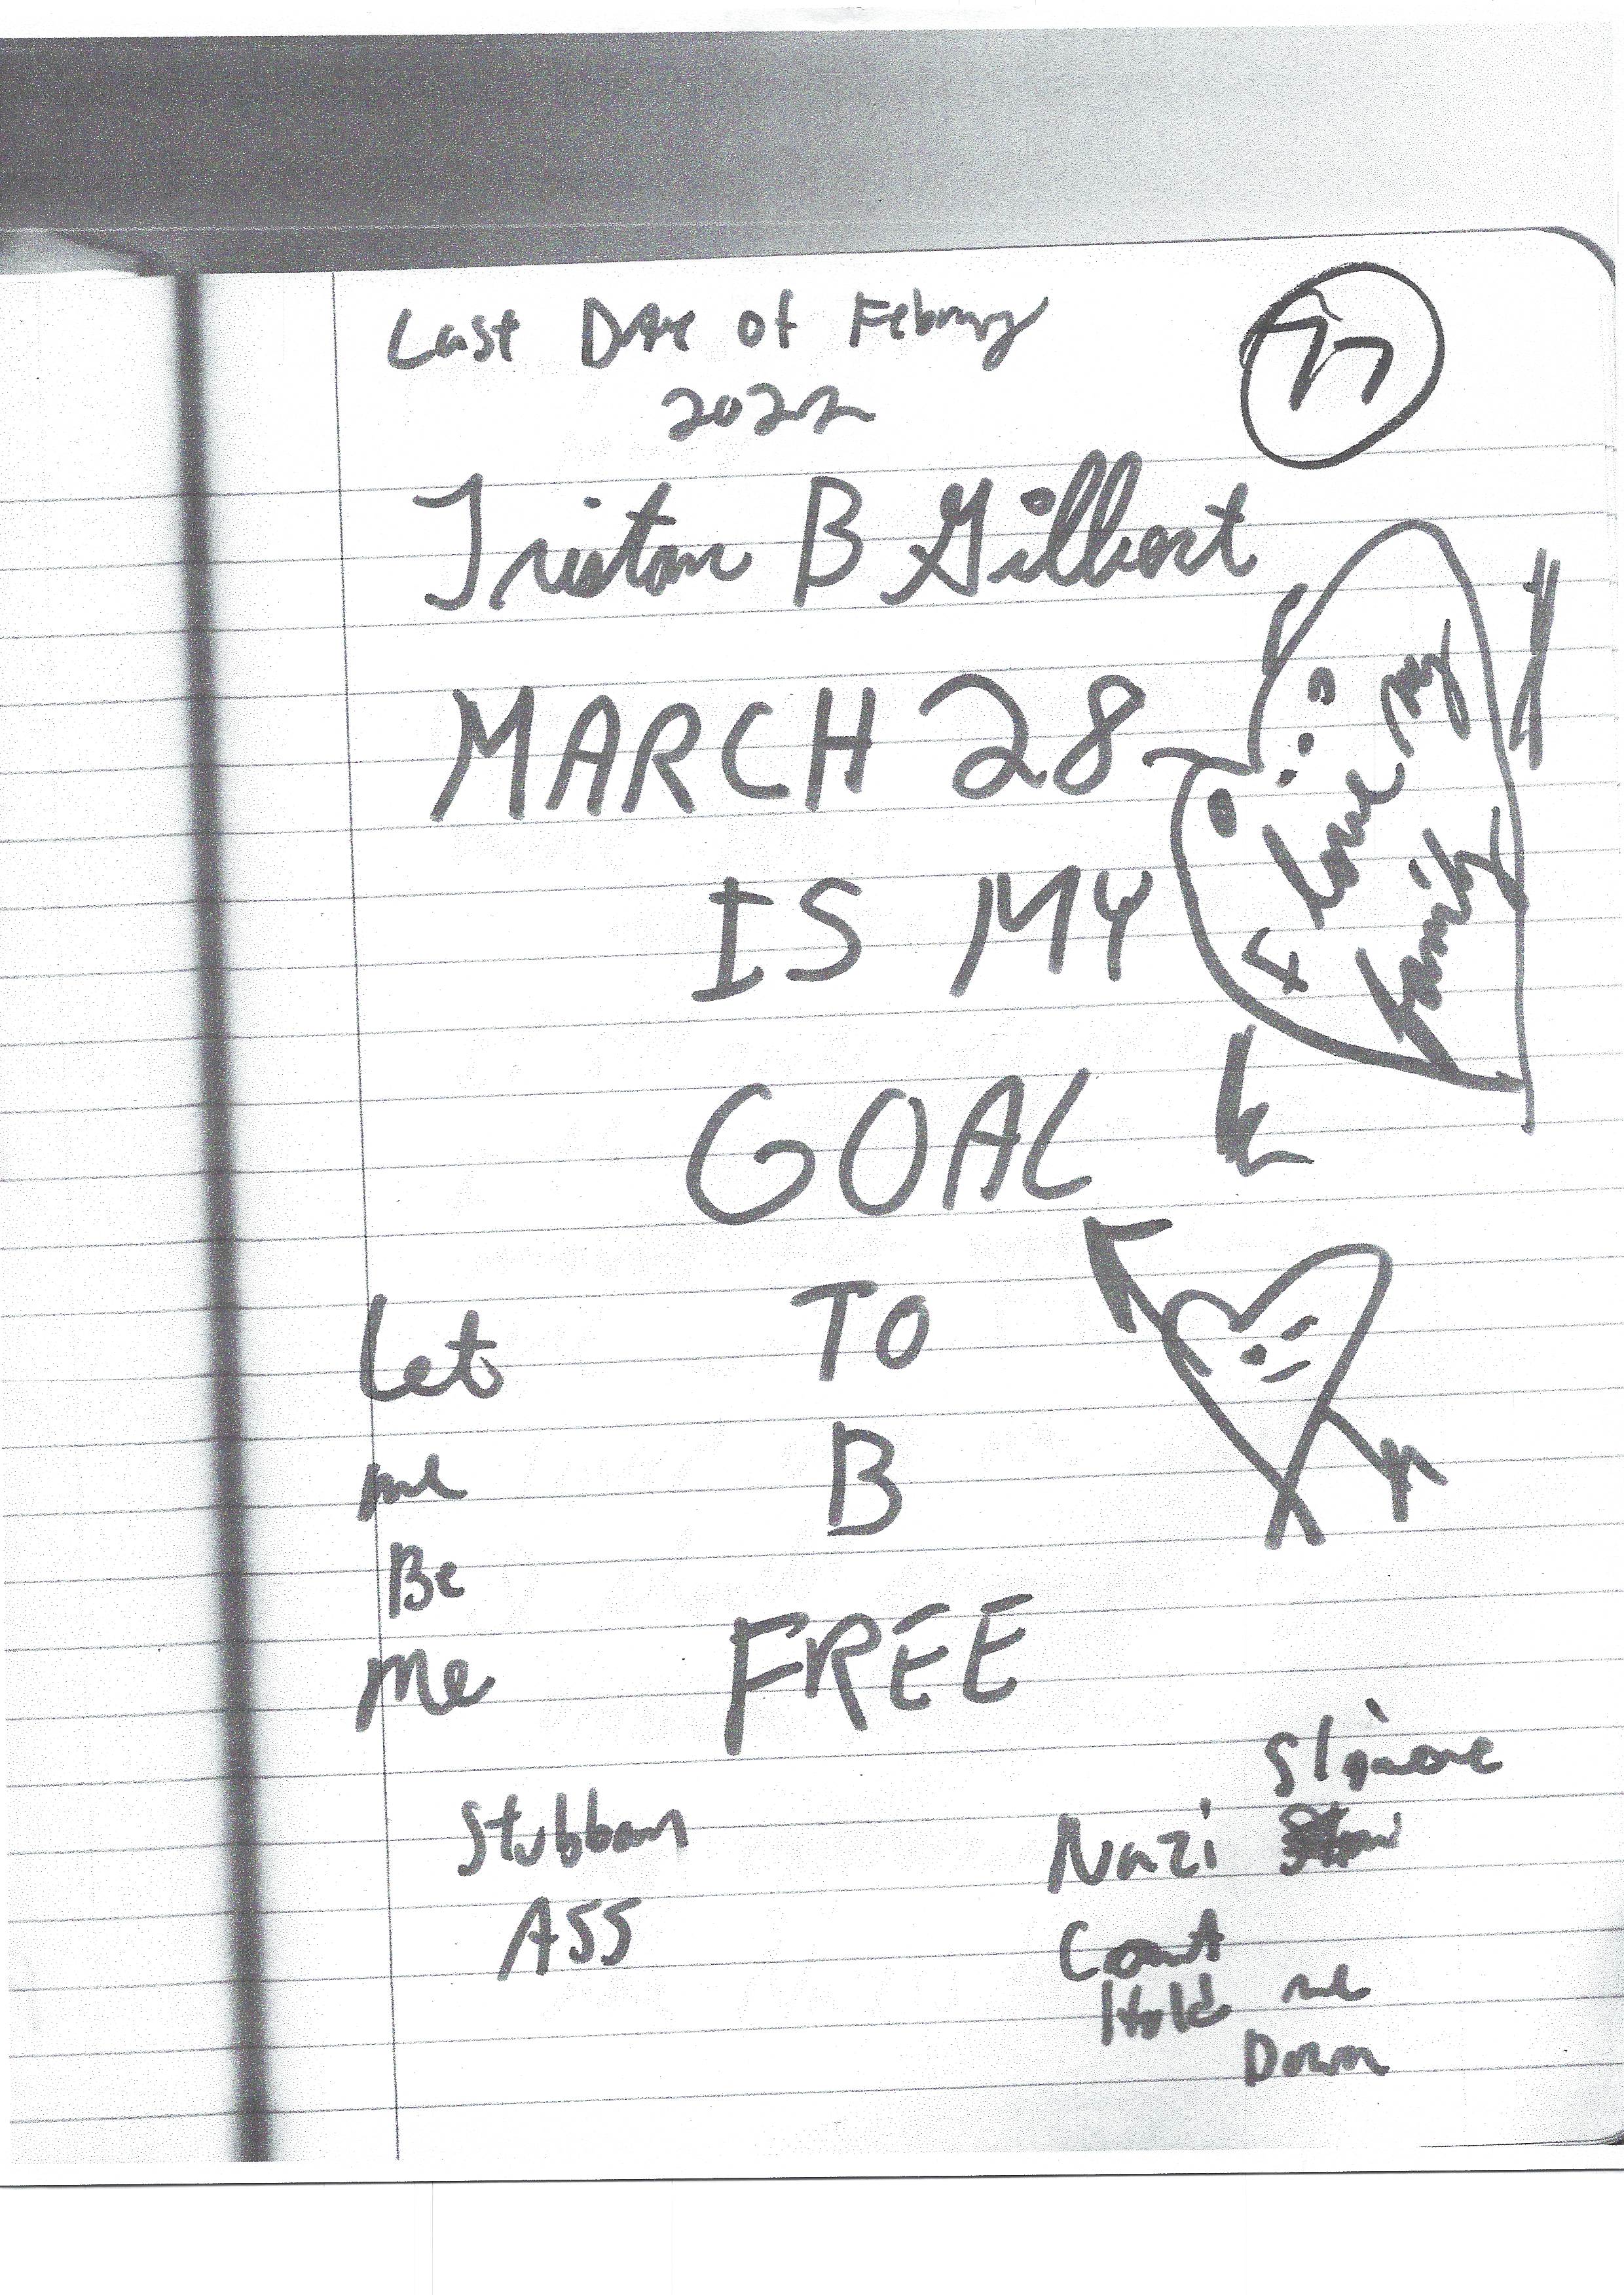 Last Date of February
77
2022
Tristan B Gilbert
MARCH 28
I love my
family
IS MY
GOAL
Let TO
me B
Be
Me FREE
Stubborn
ASS
Nazi
Can't
Hold me
Down